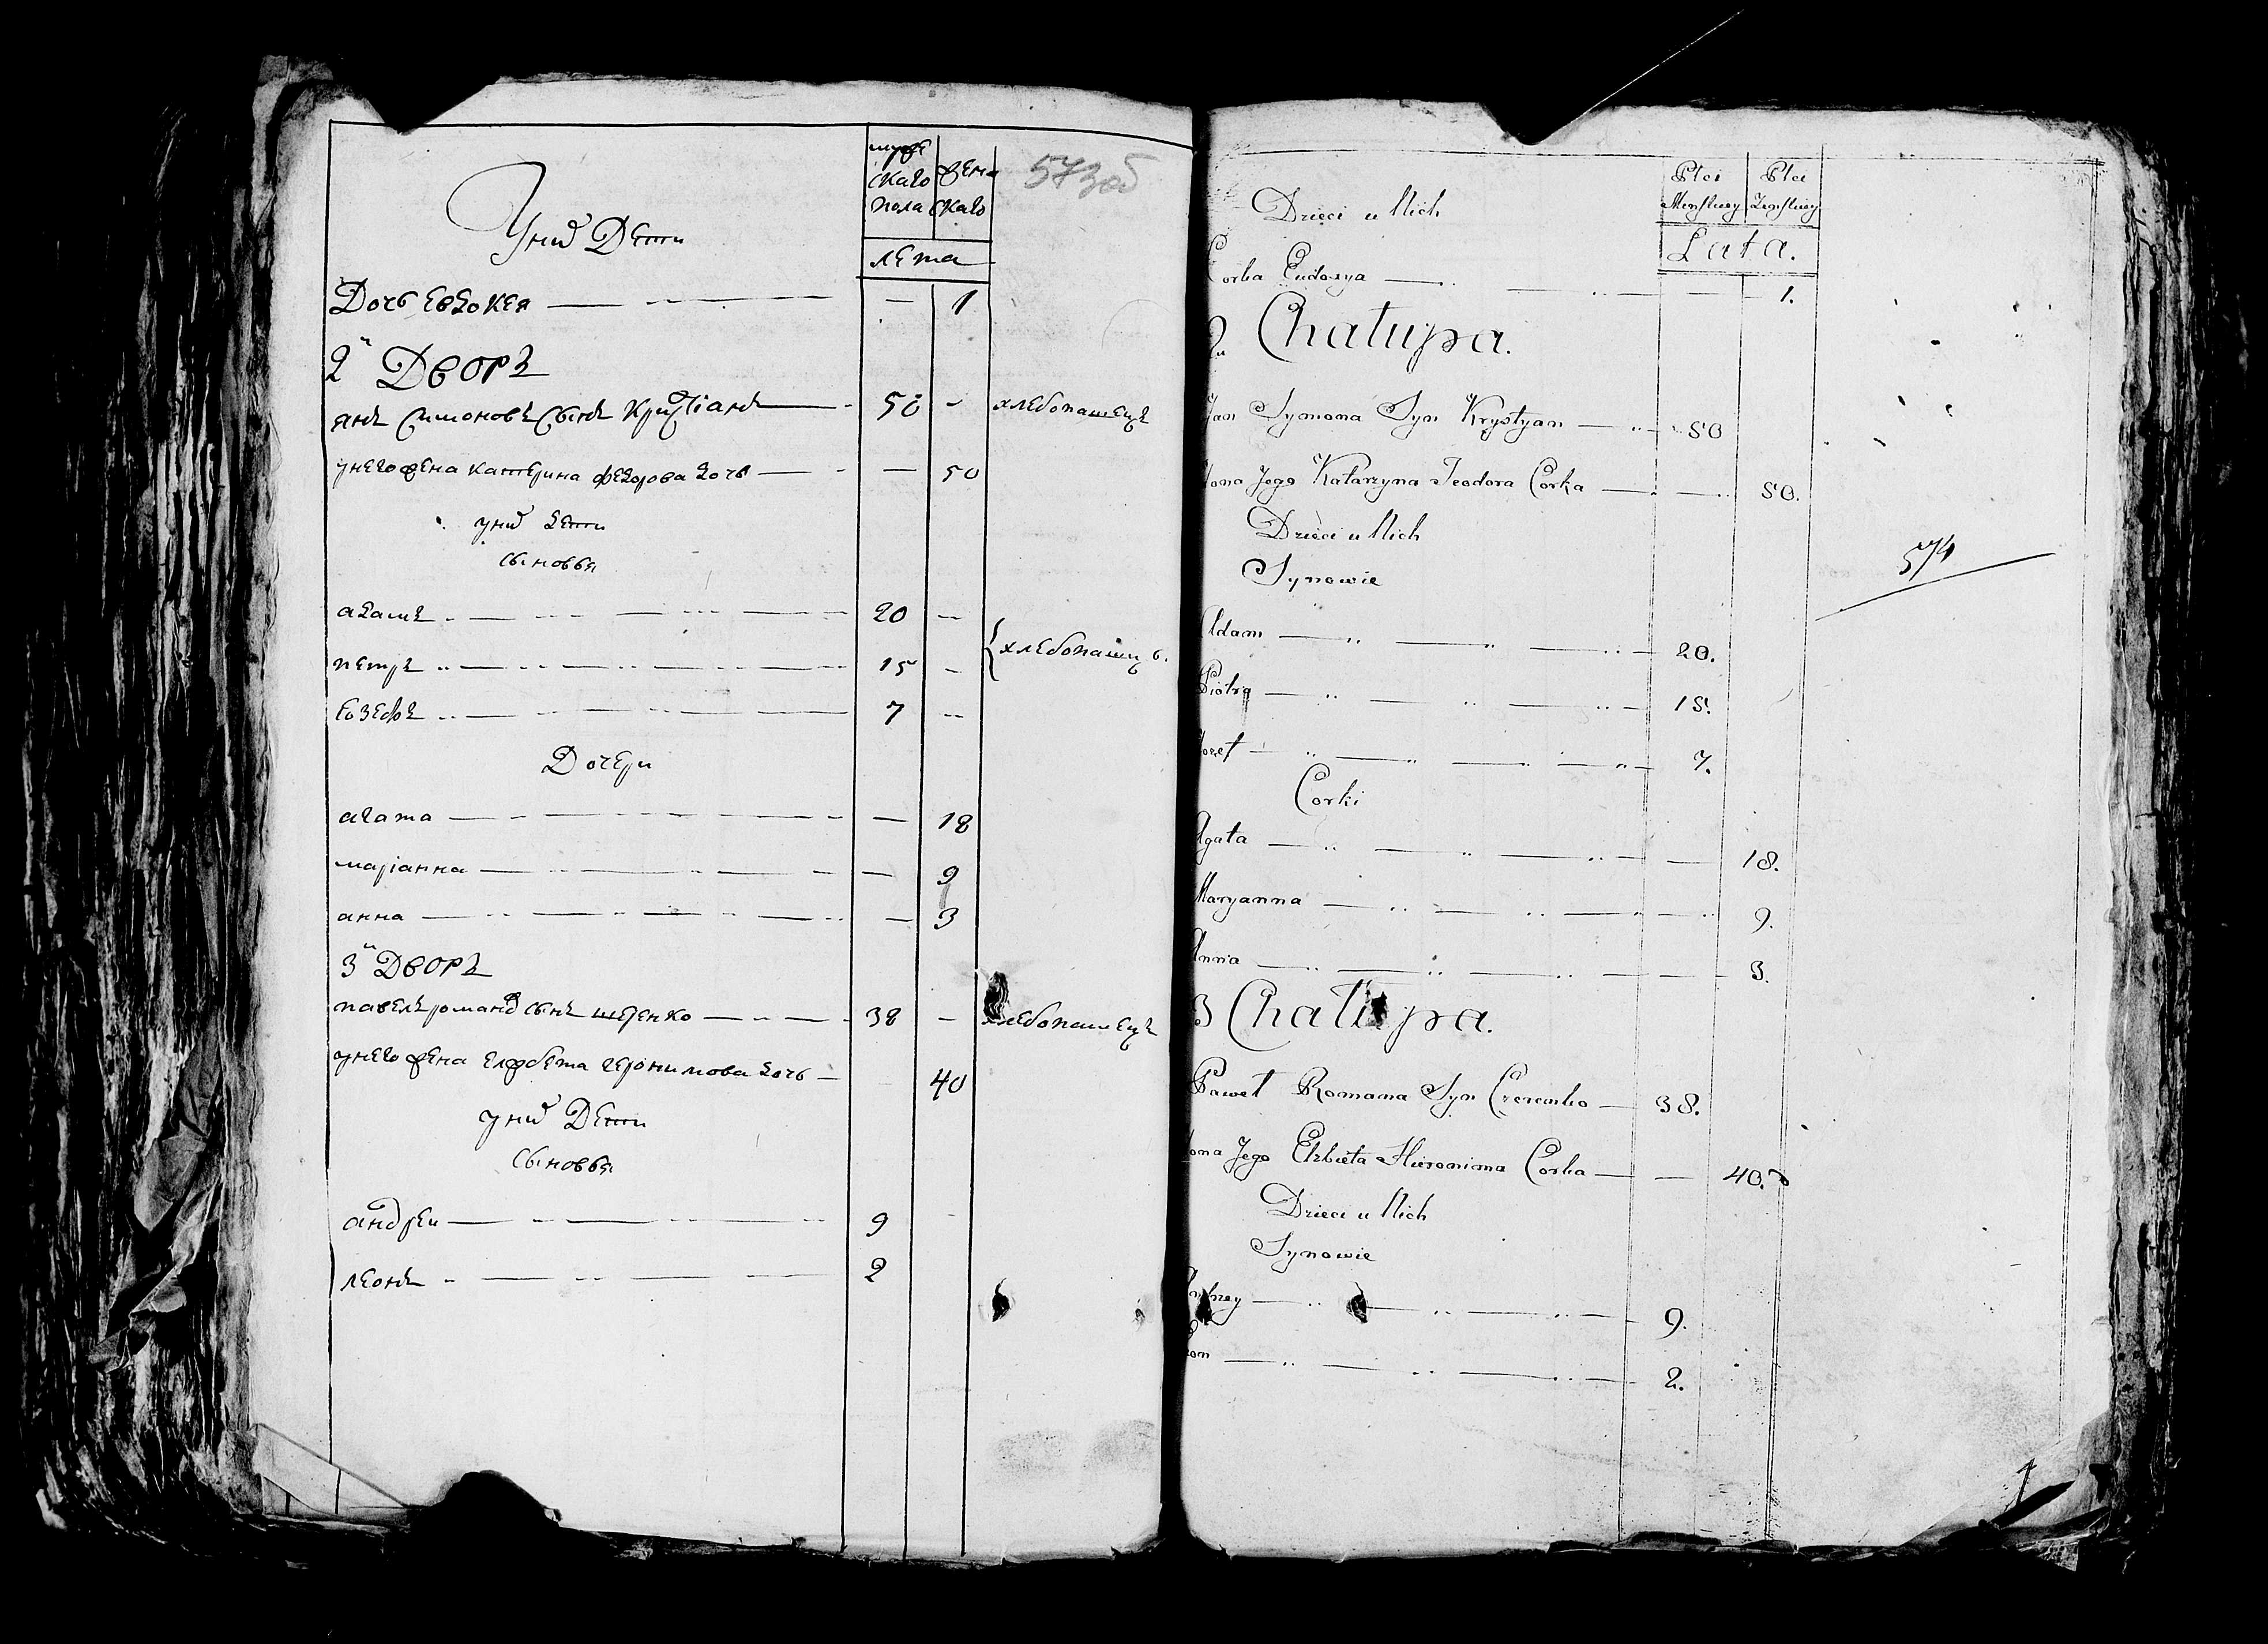 муже
скаго
пола
жен
скаго
573об
Униⷯ Дети
лета
Дочь Евдокея — 1
2й Дворъ
янъ Симоновъ Сынъ Кристіанъ — 50 — хлебопашецъ
унего жена катерина федорова дочь — 50
униⷯ дети
сыновья
адамъ — 20 —
петръ — 15 — хлебопашцы.
Еозефъ — 7 —
Дочери
агата — 18
маріанна — 9
анна — 3
3й Дворъ
павелъ романоⷡ сынъ шеренко — 38 — хлебопашецъ
унего жена елжбета геронимова дочь — 40
униⷯ Дети
Сыновья
андреи — 9
леонъ — 2
Płci Męskiey
Płci Żeńskiey
Dzieci u Nich
Lata.
Corka Eudoxya — 1.
2a Chałupa.
Jan Symona Syn Krystyan — 50
Żona Jego Katarzyna Teodora Corka — 50.
Dzieci u Nich
574
Synowie
Adam — 20.
Piotrg — 15.
Jozef — 7.
Corki
Agata — 18.
Maryanna — 9.
Anna — 3.
3 Chałupa.
Paweł Romana Syn Czerenko — 38.
Żona Jego Elzbieta Hieronima Corka — 40.
Dzieci u Nich
Synowie
Andrzey — 9.
Leon — 2.